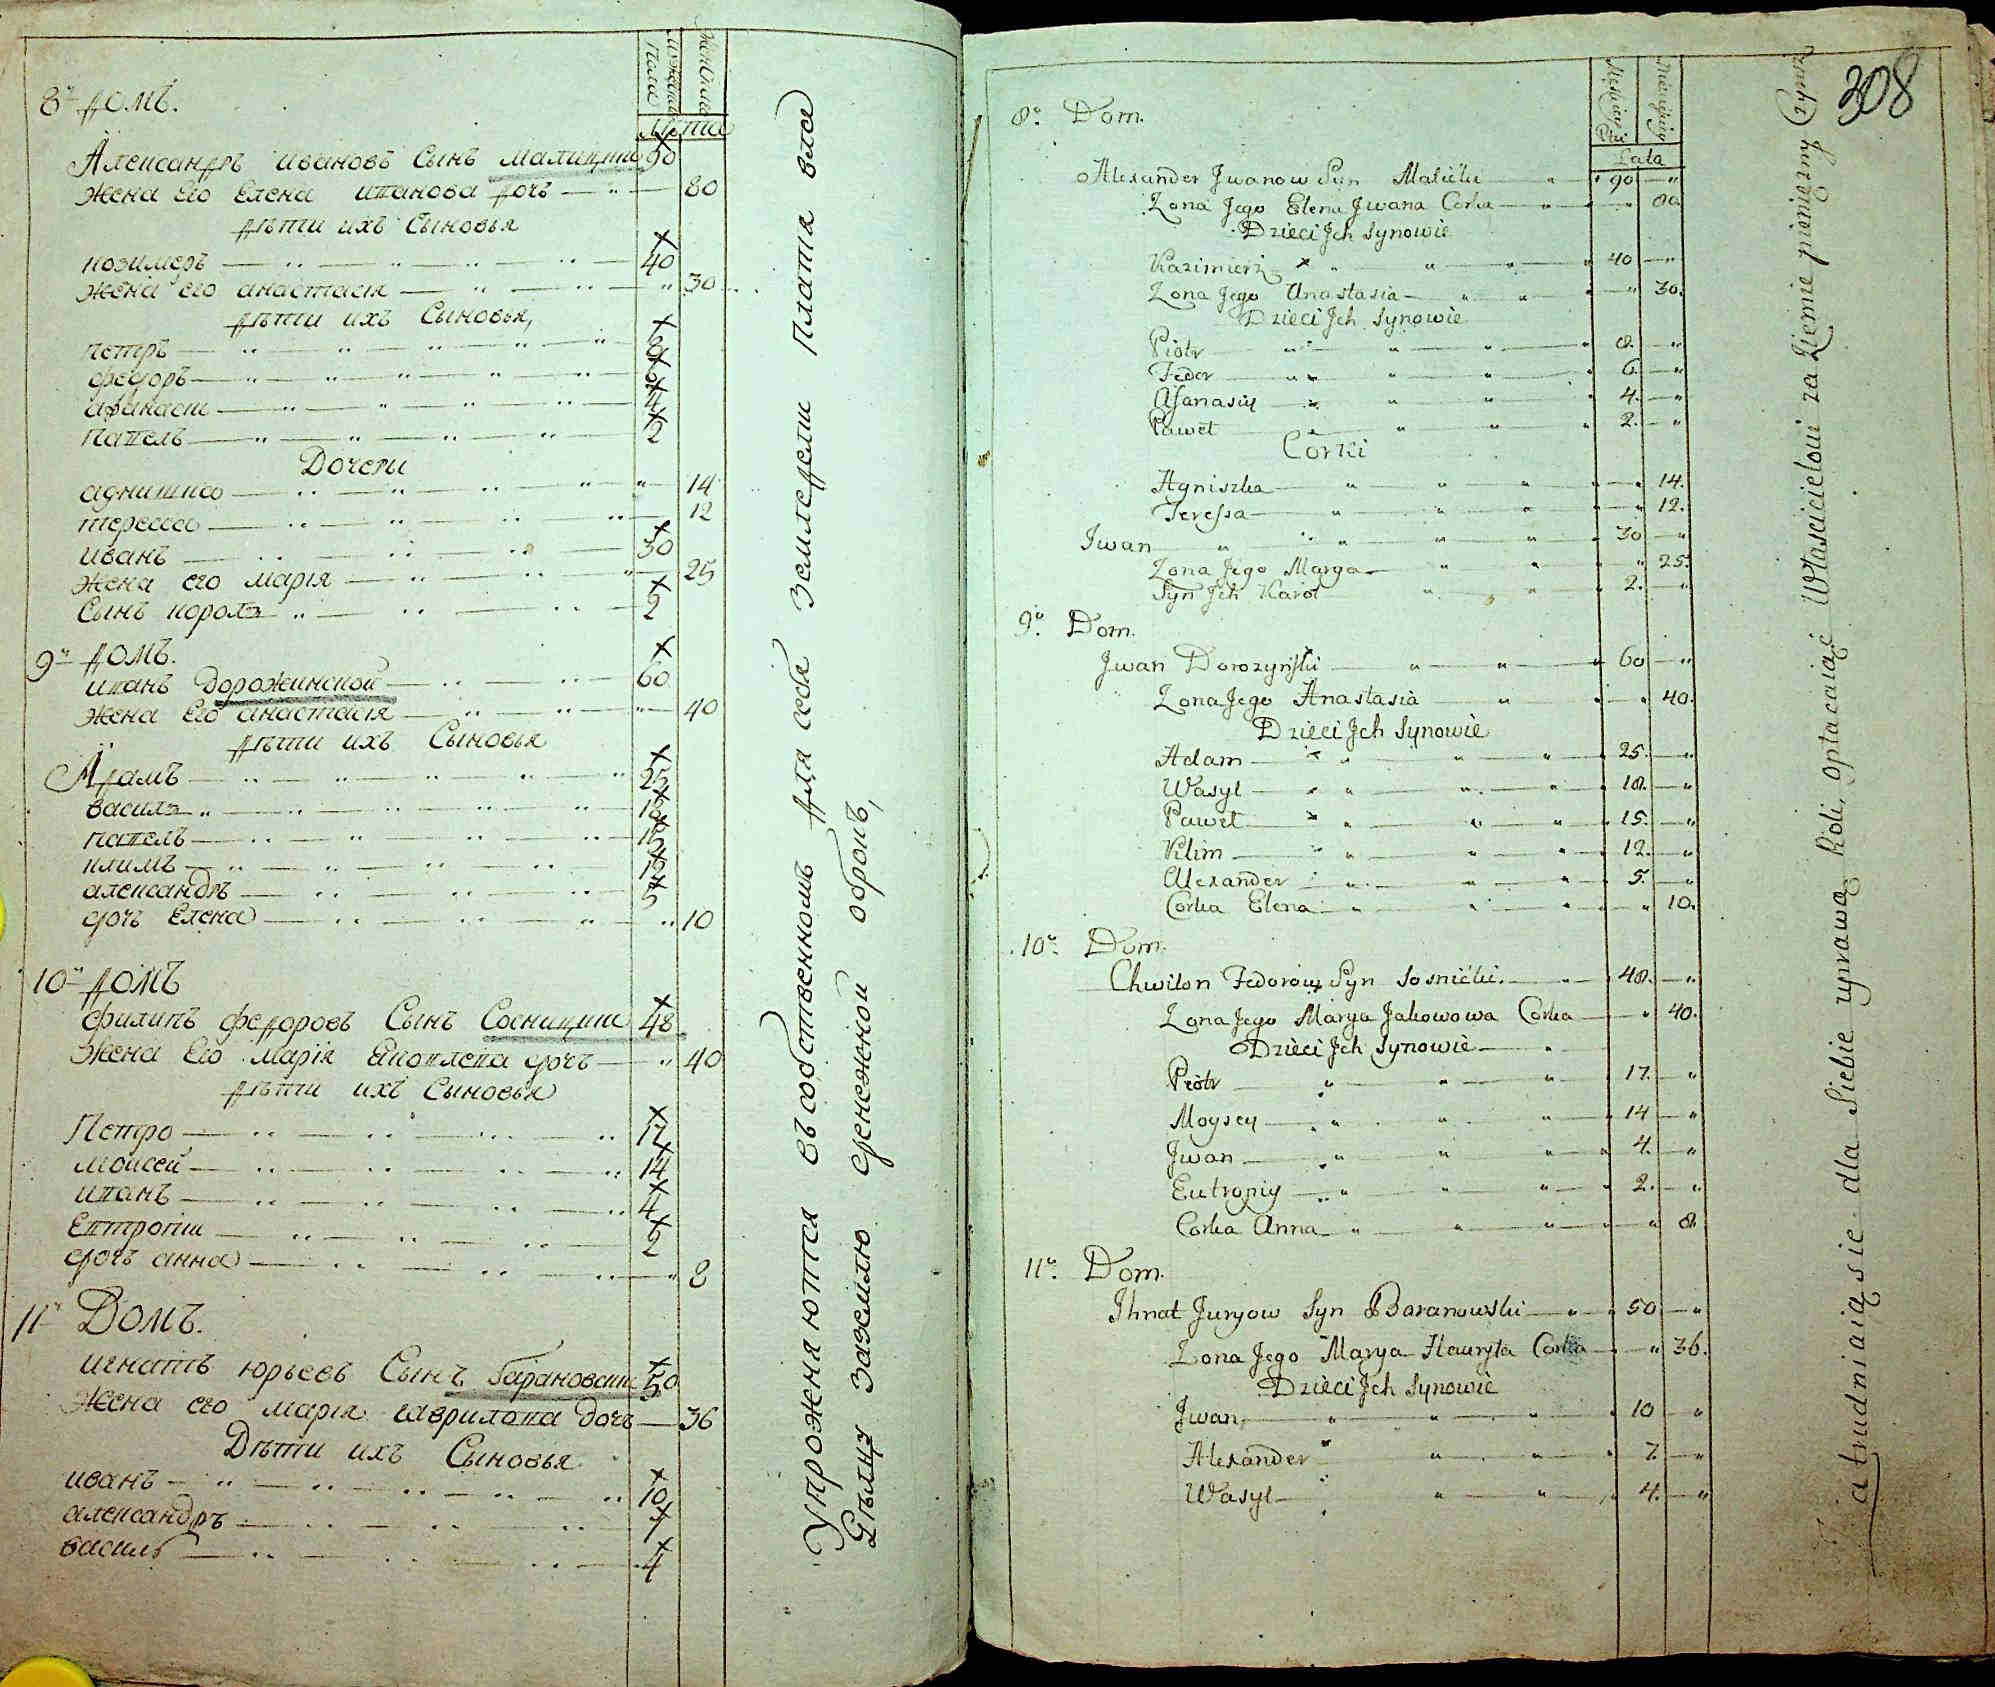 мужеска Пола
женска
Лѣта
8й домъ.
Александръ Ивановъ Сынъ малицкий 90
жена Его Елена иванова дочь 80
дѣти ихъ Сыновья
козимеръ 40
жена его анастасiя 30
дѣти ихъ Сыновья,
петръ 8
федоръ 6
афанаси 4
павелъ 2
Дочери
агнишка 14
тересса 12
иванъ 30
жена его марiя 25
Сынъ король 2
9й домъ.
иванъ дорожинской 60
жена Его анастасiя 40
дѣти ихъ Сыновья
Адамъ 25
василь 18
павелъ 15
климъ 12
александръ 5
дочь Елена 10
10й домъ
филипъ федоровъ Сынъ Сосницкий 48
жена Его марiя Яковлева дочь 40
дѣти ихъ Сыновья
Петро 17
моисей 14
иванъ 4
Евтропiи 2
дочь анна 8
11й Домъ.
игнатъ юрьевъ Сынъ барановски 50
жена его марiя гаврилова дочь 36
Дѣти ихъ Сыновья
иванъ 10
александръ 7
василь 4
Упрожняются въ собственномъ для себя земледели плата вла
дѣльцу заземлю денежной оброкъ,
308
Męskiey Płci
Lata
8o. Dom.
Alexander Jwanow Syn Malicki 90
Zona Jego Elena Jwana Corka 80
Dzieci Jch Synowie
Kazimierz 40
Zona Jego Anastasia 30.
Dzieci Jch Synowie
Piotr 8.
Fedor 6.
Afanasiy 4.
Paweł 2.
Corki
Agniszka 14.
Teressa 12.
Jwan 30
Zona Jego Marya 25.
Syn Jch Karol 2.
9o. Dom.
Jwan Dorozynski 60
Zona Jego Anastasia 40.
Dzieci Jch Synowie
Adam 25.
Wasyl 18.
Paweł 15.
Klim 12.
Alexander 5.
Corka Elena 10.
10o. Dom.
Chwilon Fedorow Syn Sosnicki. 48.
Zona Jego Marya Jakowowa Corka 40.
Dzieci Jch Synowie
Piotr 17.
Moysey 14
Jwan 4.
Eutropiy 2.
Corka Anna 8
11o. Dom.
Jhnat Juryow Syn Baranowski 50
Zona Jego Marya Hauryła Corka 36.
Dzieci Jch Synowie
Jwan 10
Alexander 7.
Wasyl 4.
atrudniaią sie dla Siebie uprawą Roli, opłacaiąć Właścicielowi za Ziemie pieniężny Czynsz